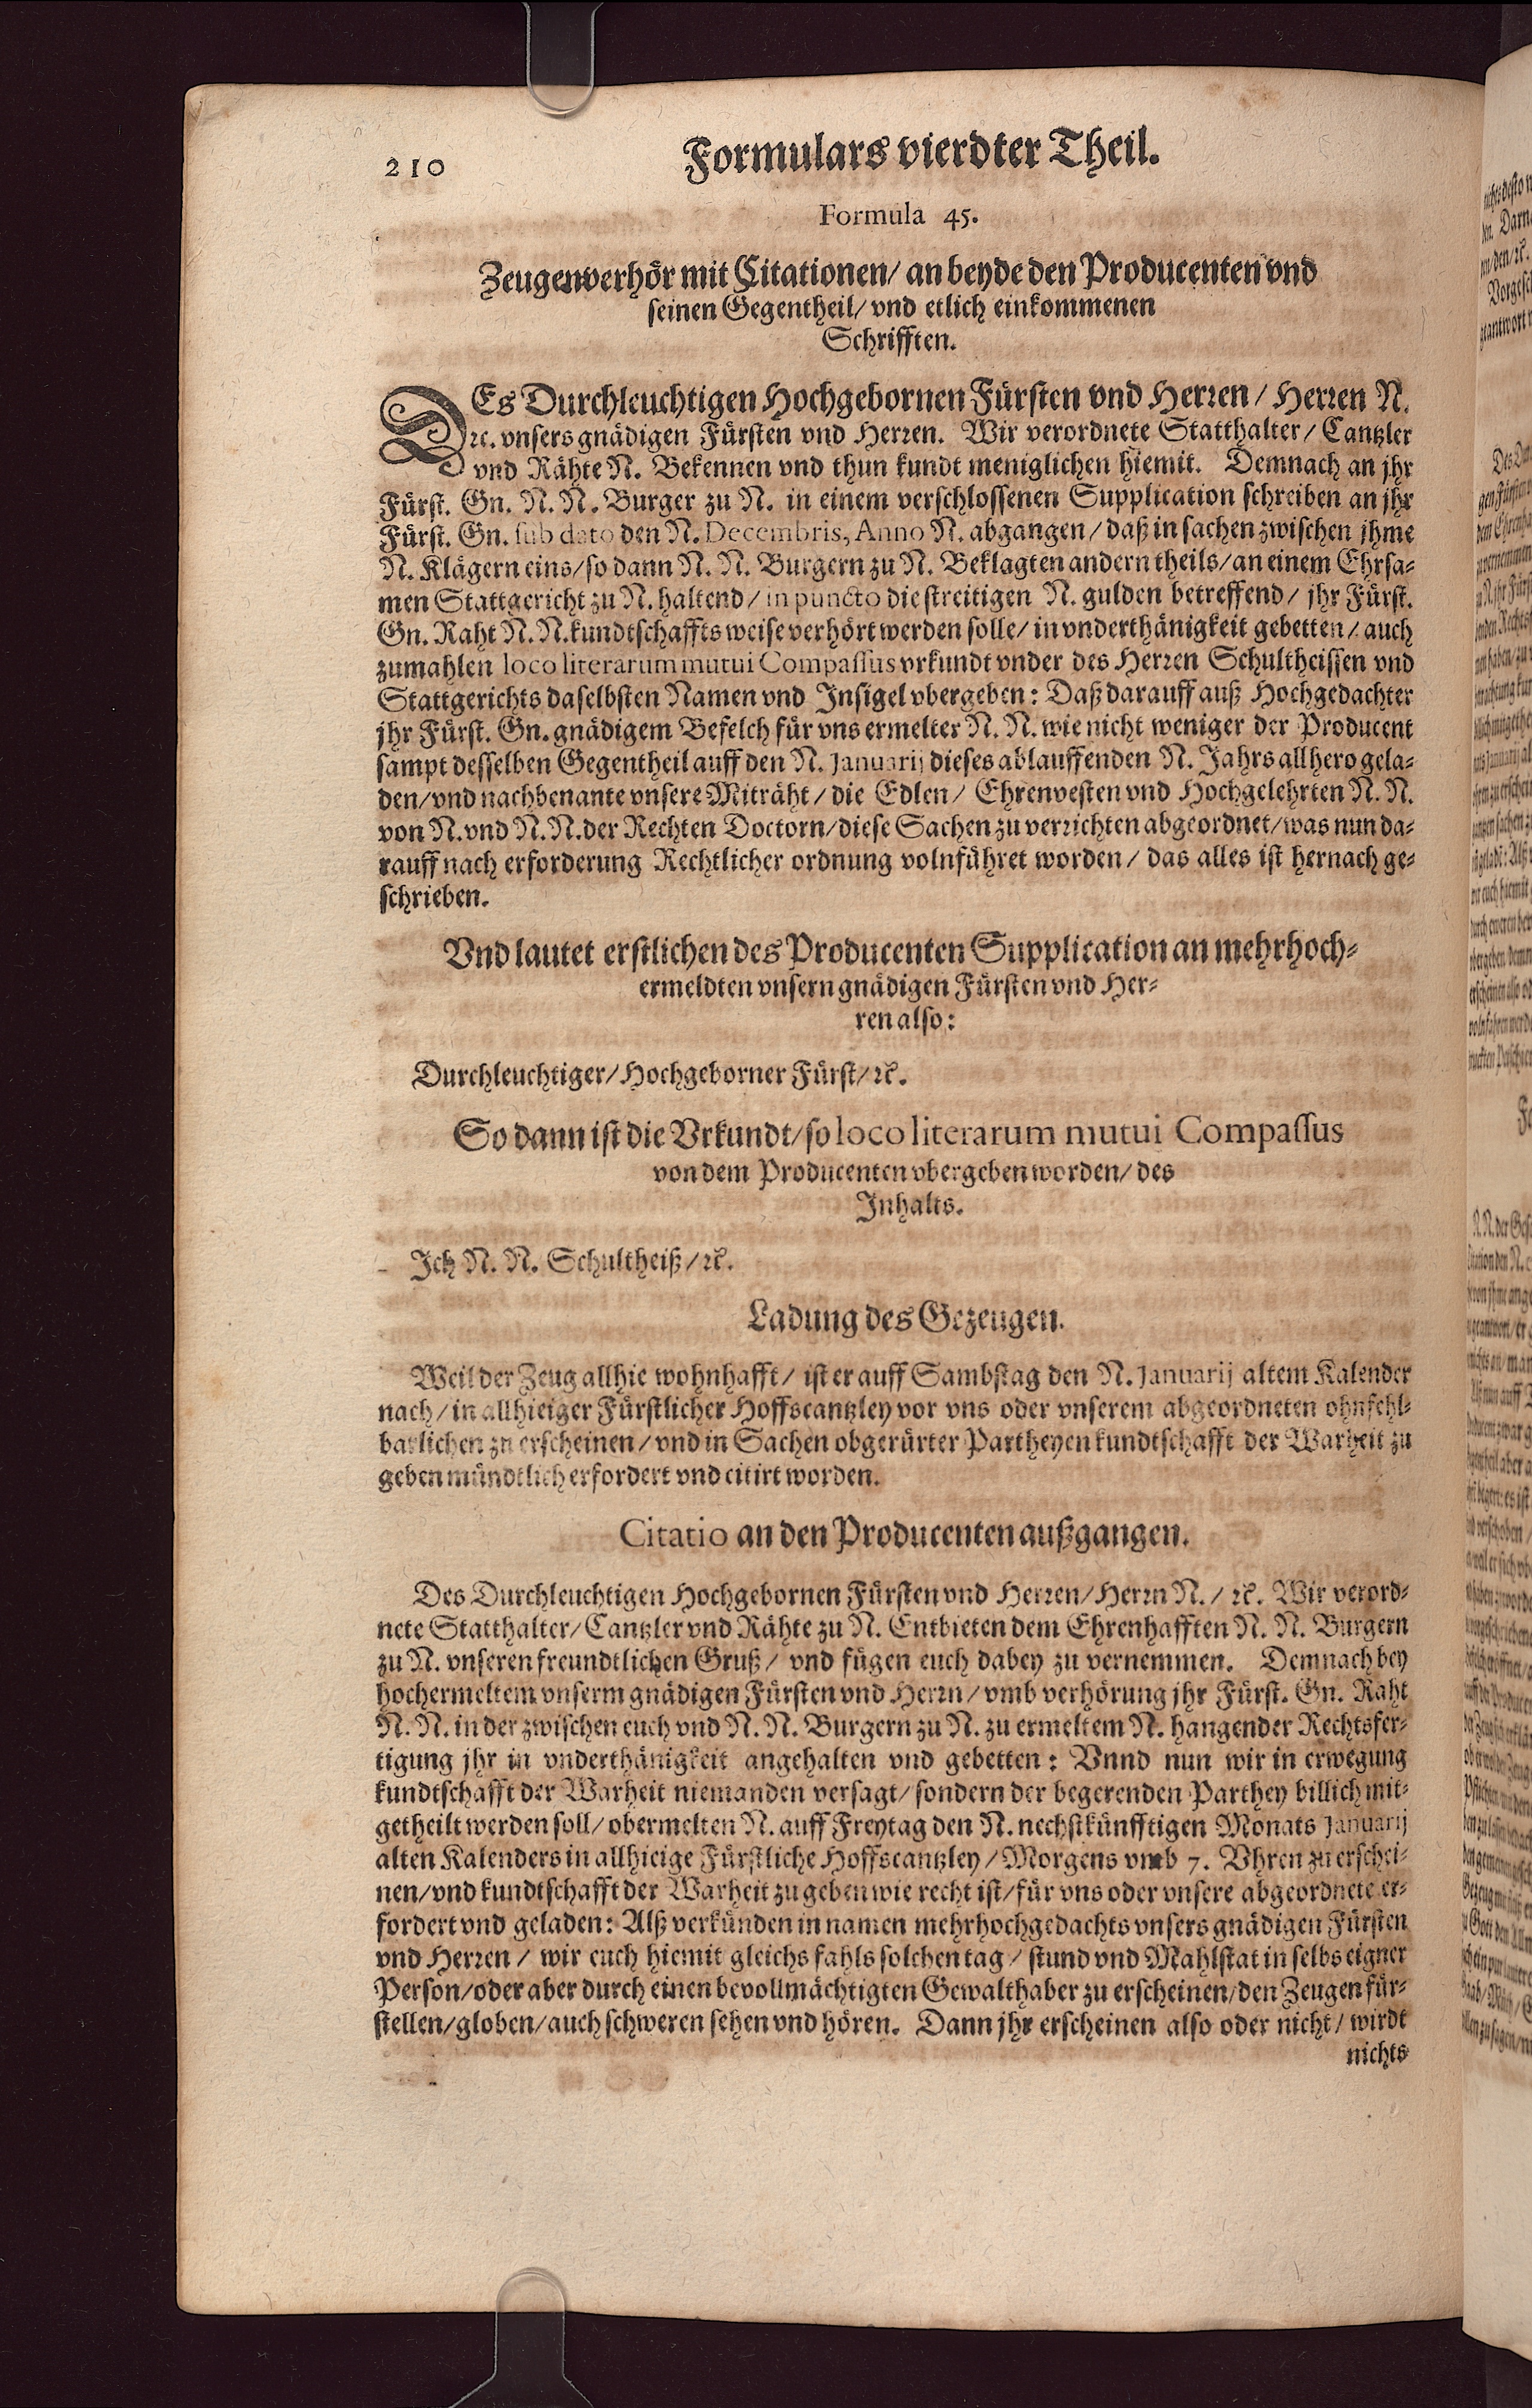 210
Formulars vierdter Theil.
Formula 45.
Zeugenverhör mit Citationen/ an beyde den Producenten vnd
seinen Gegentheil/ vnd etlich einkommenen
Schrifften.
DEs Durchleuchtigen Hochgebornen Fürsten vnd Herren/ Herren N.
rc. vnsers gnädigen Fürsten vnd Herren. Wir verordnete Statthalter/ Cantzler
vnd Rähte N. Bekennen vnd thun kundt meniglichen hiemit. Demnach an jhr
Fürst. Gn. N. N. Burger zu N. in einem verschlossenen Supplication schreiben an jhr
Fürst. Gn. sub dato den N. Decembris, Anno N. abgangen/ daß in sachen zwischen jhme
N. Klägern eins/ so dann N. N. Burgern zu N. Beklagten andern theils/ an einem Ehrsa-
men Stattgericht zu N. haltend/ in puncto die streitigen N. gulden betreffend/ jhr Fürst.
Gn. Raht N. N. kundtschaffts weise verhört werden solle/ in vnderthänigkeit gebetten/ auch
zumahlen loco literarum mutui Compassus vrkundt vnder des Herren Schultheissen vnd
Stattgerichts daselbsten Namen vnd Insigel vbergeben: Daß darauff auß Hochgedachter
jhr Fürst. Gn. gnädigem Befelch für vns ermelter N. N. wie nicht weniger der Producent
sampt desselben Gegentheil auff den N. Januarij dieses ablauffenden N. Jahrs allhero gela-
den/ vnd nachbenante vnsere Miträht/ die Edlen/ Ehrenvesten vnd Hochgelehrten N. N.
von N. vnd N. N. der Rechten Doctorn/ diese Sachen zu verrichten abgeordnet/ was nun da-
rauff nach erforderung Rechtlicher ordnung volnführet worden/ das alles ist hernach ge-
schrieben.
Vnd lautet erstlichen des Producenten Supplication an mehrhoch-
ermeldten vnsern gnädigen Fürsten vnd Her-
ren also:
Durchleuchtiger/ Hochgeborner Fürst/ rc.
So dann ist die Vrkundt/ so loco literarum mutui Compassus
von dem Producenten vbergeben worden/ des
Inhalts.
Ich N. N. Schultheiß/ rc.
Ladung des Gezeugen.
Weil der Zeug allhie wohnhafft/ ist er auff Sambstag den N. Januarij altem Kalender
nach/ in allhieiger Fürstlicher Hoffscantzley vor vns oder vnserem abgeordneten ohnfehl-
barlichen zu erscheinen/ vnd in Sachen obgerürter Partheyen kundtschafft der Warheit zu
geben mündtlich erfordert vnd citirt worden.
Citatio an den Producenten außgangen.
Des Durchleuchtigen Hochgebornen Fürsten vnd Herren/ Herrn N./ rc. Wir verord-
nete Statthalter/ Cantzler vnd Rähte zu N. Entbieten dem Ehrenhafften N. N. Burgern
zu N. vnseren freundtlichen Gruß/ vnd fügen euch dabey zu vernemmen. Demnach bey
hochermeltem vnserm gnädigen Fürsten vnd Herrn/ vmb verhörung jhr Fürst. Gn. Raht
N. N. in der zwischen euch vnd N. N. Burgern zu N. zu ermeltem N. hangender Rechtsfer-
tigung jhr in vnderthänigkeit angehalten vnd gebetten: Vnnd nun wir in erwegung
kundtschafft der Warheit niemanden versagt/ sondern der begerenden Parthey billich mit-
getheilt werden soll/ obermelten N. auff Freytag den N. nechstkünfftigen Monats Januarij
alten Kalenders in allhieige Fürstliche Hoffscantzley/ Morgens vmb 7. Vhren zu erschei-
nen/ vnd kundtschafft der Warheit zu geben wie recht ist/ für vns oder vnsere abgeordnete er-
fordert vnd geladen: Alß verkünden in namen mehrhochgedachts vnsers gnädigen Fürsten
vnd Herren/ wir euch hiemit gleichs fahls solchen tag/ stund vnd Mahlstat in selbs eigner
Person/ oder aber durch einen bevollmächtigten Gewalthaber zu erscheinen/ den Zeugen für-
stellen/ globen/ auch schweren sehen vnd hören. Dann jhr erscheinen also oder nicht/ wirdt
nichts